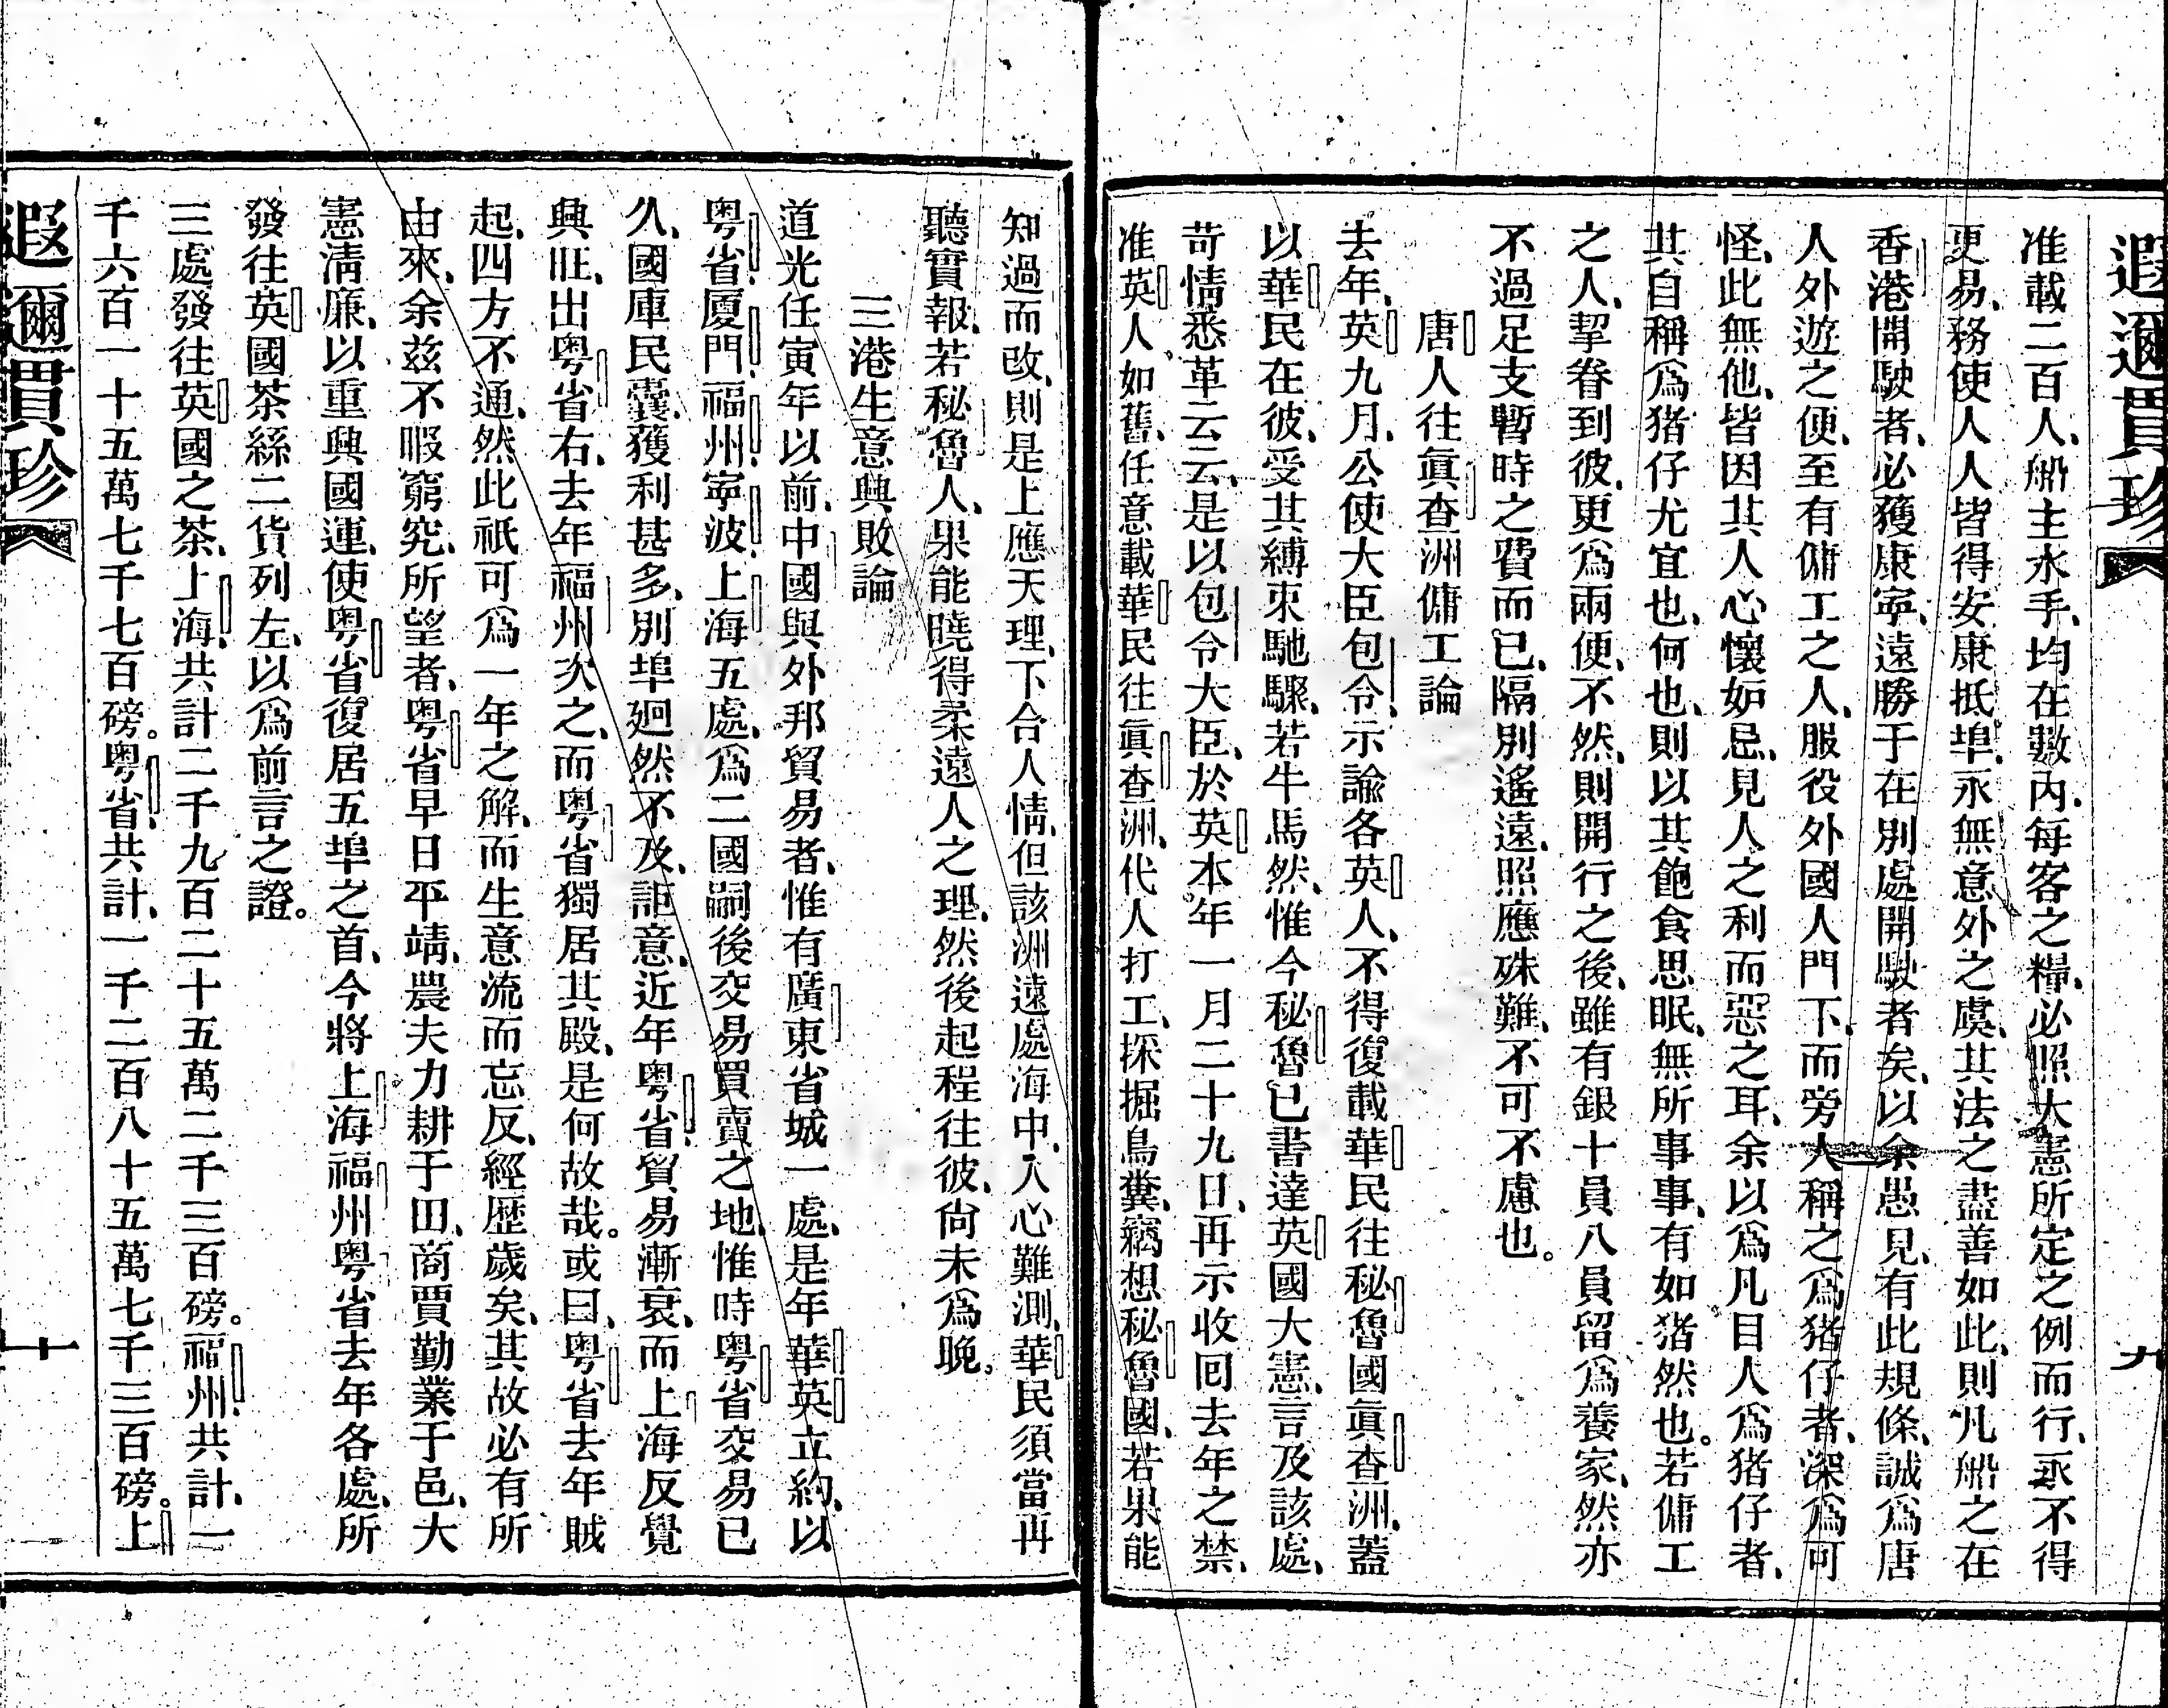 遐邇貫珍
九
准載二百人、船主水手、均在數內、每客之糧、必照大憲所定之例而行、永不得
更易、務使人人皆得安康抵埠、永無意外之虞、其法之盡善如此、則凡船之在
香港開駛者、必獲康寧、遠勝于在別處開駛者矣、以余愚見、有此規條、誠爲唐
人外遊之便、至有傭工之人、服役外國人門下、而旁人稱之爲猪仔者、深爲可
怪、此無他、皆因其人心懷妬忌、見人之利而惡之耳、余以爲凡目人爲猪仔者、
其自稱爲猪仔尤宜也、何也、則以其飽食思眠、無所事事、有如猪然也。若傭工
之人、挈眷到彼、更爲兩便、不然、則開行之後、雖有銀十員八員留爲養家、然亦
不過足支暫時之費而已、隔別遙遠、照應殊難、不可不慮也。
唐人往眞查洲傭工論
去年、英九月、公使大臣包令、示諭各英人、不得復載華民往秘魯國眞查洲、蓋
以華民在彼、受其縛束馳驟、若牛馬然、惟今秘魯已書達英國大憲、言及該處、
苛情悉革云云、是以包令大臣、於英本年一月二十九日、再示收囘去年之禁、
准英人如舊、任意載華民往眞查洲、代人打工、採掘鳥糞、竊想秘魯國、若果能
知過而改、則是上應天理、下合人情、但該洲遠處海中、人心難測、華民須當再
聽實報、若秘魯人、果能曉得柔遠人之理、然後起程往彼、尙未爲晚。
三港生意興敗論
道光任寅年以前、中國與外邦貿易者、惟有廣東省城一處、是年華英立約、以
粤省、厦門、福州、寧波、上海五處、爲二國嗣後交易買賣之地、惟時粤省交易已
久、國庫民囊、獲利甚多、別埠廻然不及、詎意、近年粤省、貿易漸衰、而上海反覺
興旺、出粤省右、去年福州次之、而粤省獨居其殿、是何故哉。或曰、粤省去年賊
起、四方不通、然此祇可爲一年之解、而生意流而忘反、經歷歲矣、其故必有所
由來、余茲不暇窮究、所望者、粤省早日平靖、農夫力耕于田、商賈勤業于邑、大
憲淸廉、以重興國運、使粤省復居五埠之首、今將上海福州粤省去年各處、所
發往英國茶絲二貨列左、以爲前言之證。
三處發往英國之茶、上海、共計二千九百二十五萬二千三百磅。福州、共計、一
千六百一十五萬七千七百磅。粤省、共計、一千二百八十五萬七千三百磅。上
遐邇貫珍
十